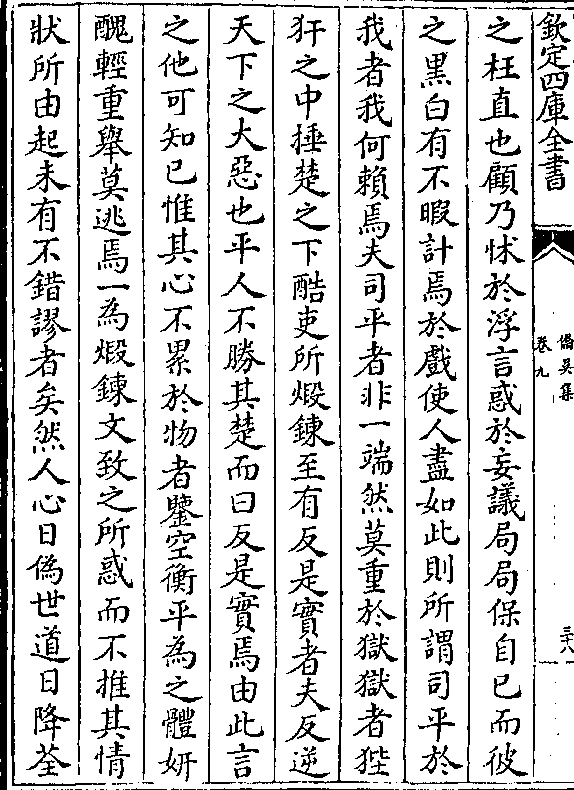 欽定四庫全書
僑吳集
卷九
三十八
之枉直也顧乃怵於浮言惑於妄議局局保自已而彼
之黒白有不暇計焉於戲使人盡如此則所謂司平於
我者我何賴焉夫司平者非一端然莫重於獄獄者狴
犴之中捶楚之下酷吏所煅鍊至有反是實者夫反逆
天下之大惡也平人不勝其楚而曰反是實焉由此言
之他可知已惟其心不累於物者鑒空衡平為之體妍
醜輕重舉莫逃焉一為煅鍊文致之所惑而不推其情
狀所由起未有不錯謬者矣然人心日偽世道日降荃